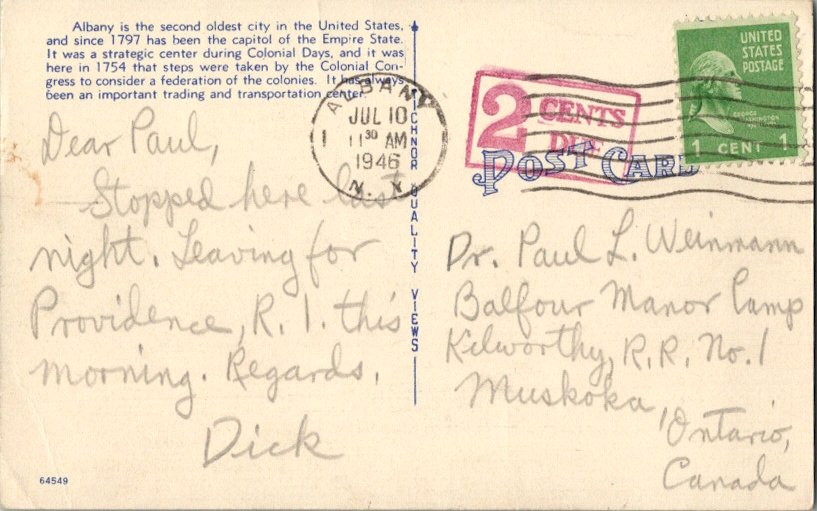 Albany is the second oldest city in the United States,
and since 1797 has been the capitol of the Empire State.
It was a strategic center during Colonial Days, and it was
here in 1754 that steps were taken by the Colonial Con-
gress to consider a federation of the colonies. It has always
been an important trading and transportation center.
ALBANY
JUL 10
11 30 AM
1946
N. Y.
1
2 CENTS
DUE
UNITED
STATES
POSTAGE
GEORGE
WASHINGTON
1 CENT 1
POST CARD
Dear Paul,
Stopped here last
night. Leaving for
Providence, R. I. this
morning. Regards,
Dick
TICHNOR QUALITY VIEWS
Dr. Paul L. Weinmann
Balfour Manor Camp
Kilworthy, R.R. No. 1
Muskoka,
Ontario,
Canada
64549